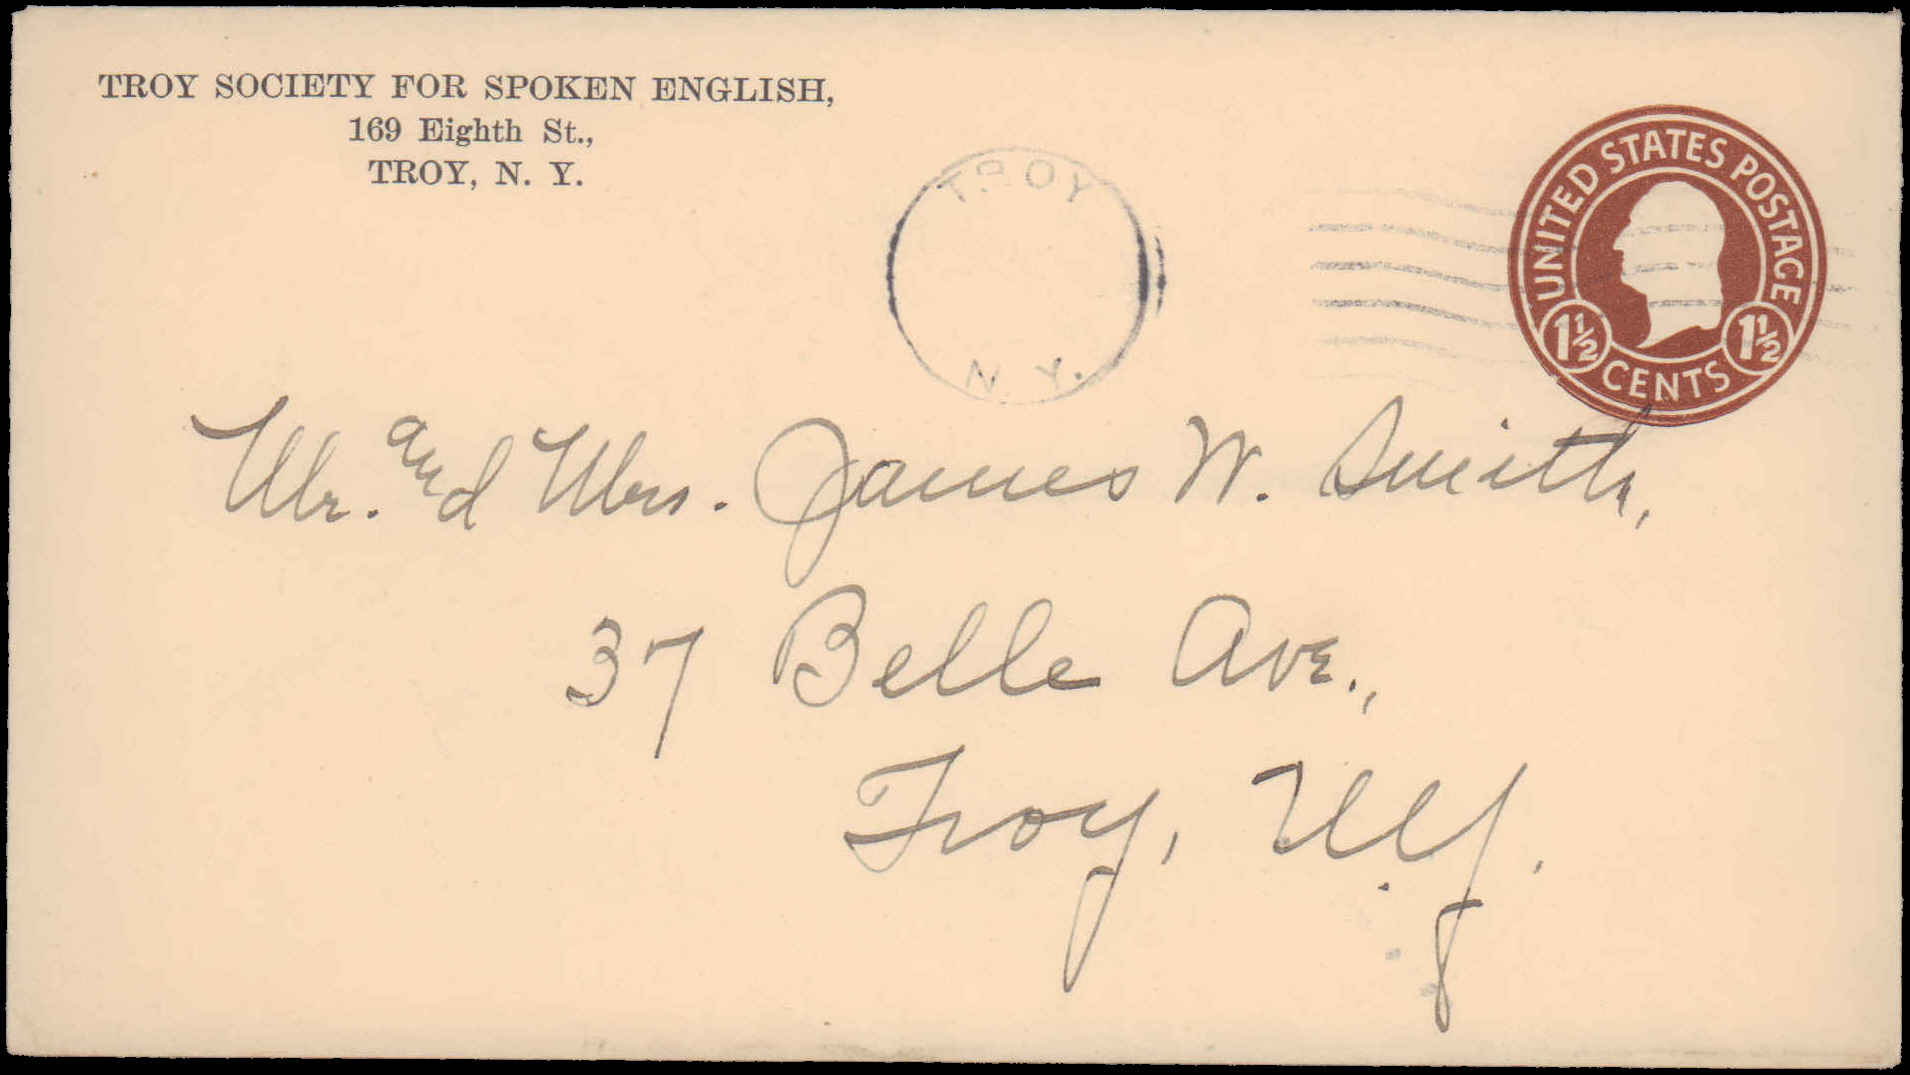 TROY SOCIETY FOR SPOKEN ENGLISH,
169 Eighth St.,
TROY, N. Y.
TROY
N. Y.
UNITED STATES POSTAGE
1½ 1½
CENTS
Mr. and Mrs. James W. Smith,
37 Belle Ave.,
Troy, N.Y.